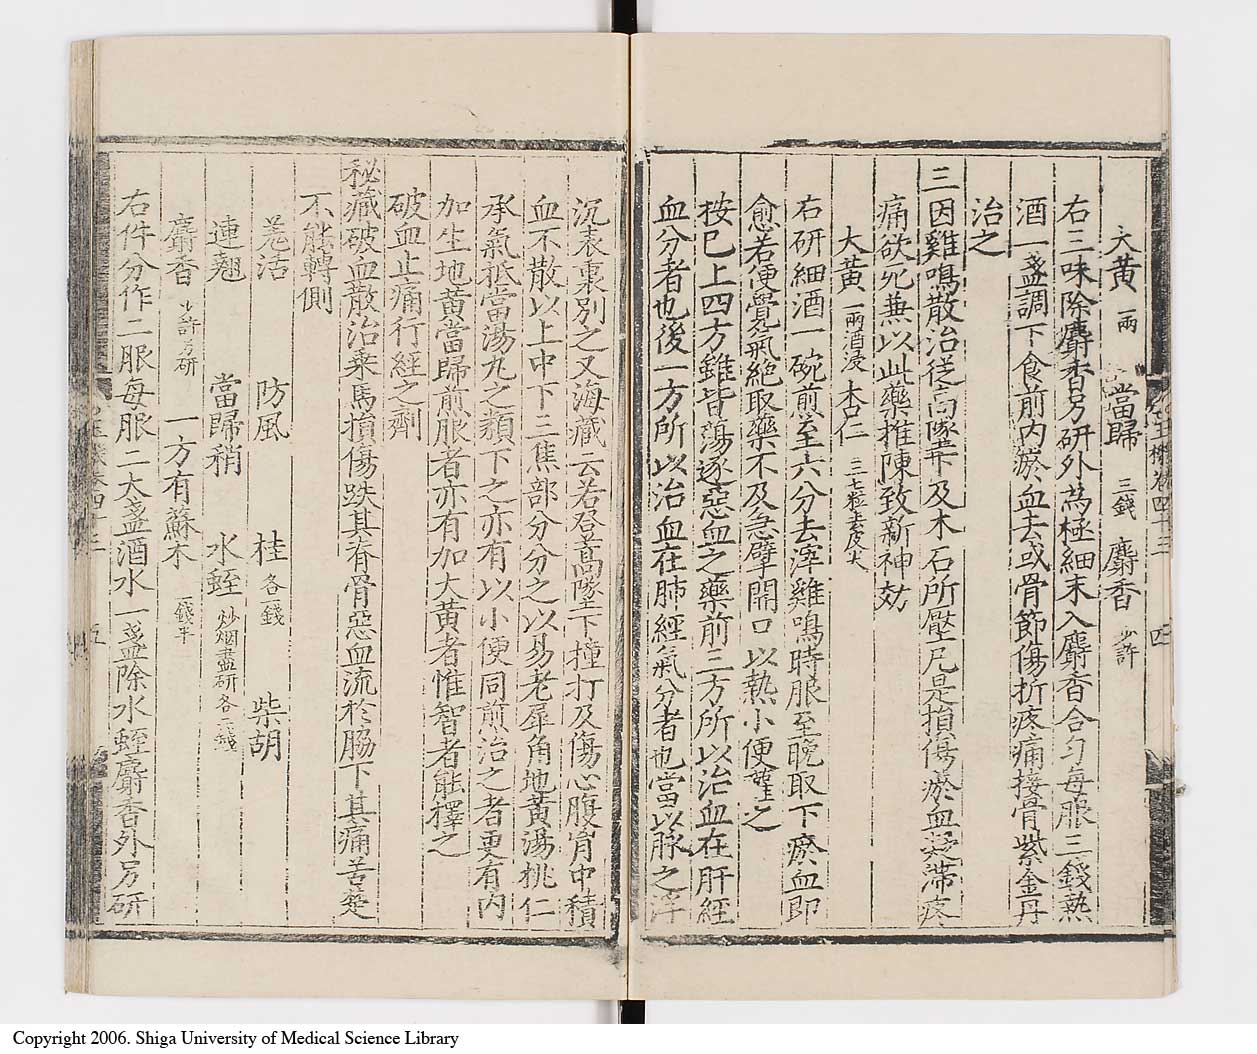 大黃 一兩 當歸 三錢 麝香 少許
右三味除麝香另研外為極細末入麝香合勻每服三錢熱
酒一盞調下食前內瘀血去或骨節傷折疼痛接骨紫金丹
治之
三因雞鳴散治從高隊下及木石所壓凡是損傷瘀血凝滯疼
痛欲死兼以此藥推陳致新神効
大黃 一兩酒浸 杏仁 三七粒去皮尖
右研細酒一碗煎至六分去滓雞鳴時服至晚取下瘀血即
愈若便覺氣絕取藥不及急擘開口以熱小便灌之
按已上四方雖皆蕩逐惡血之藥前三方所以治血在肝經
血分者也後一方所以治血在肺經氣分者也當以脉之浮
四
沉表裏別之又海藏云若登高隊下撞打及傷心腹胷中積
血不散以上中下三焦部分分之以易老犀角地黃湯桃仁
承氣抵當湯丸之類下之亦有以小便同煎治之者更有內
加生地黃當歸煎服者亦有加大黃者惟智者能擇之
破血止痛行經之劑
秘藏破血散治乗馬損傷跌其脊骨惡血流於脇下其痛苦楚
不能轉側
羗活 防風 桂 各一錢 柴胡
連翹 當歸稍 水蛭 炒烟盡研各二錢
麝香 少許另研 一方有蘇木 一錢半
右件分作二服每服二大盞酒水一盞除水蛭麝香外另研
五
Copyright 2006. Shiga University of Medical Science Library